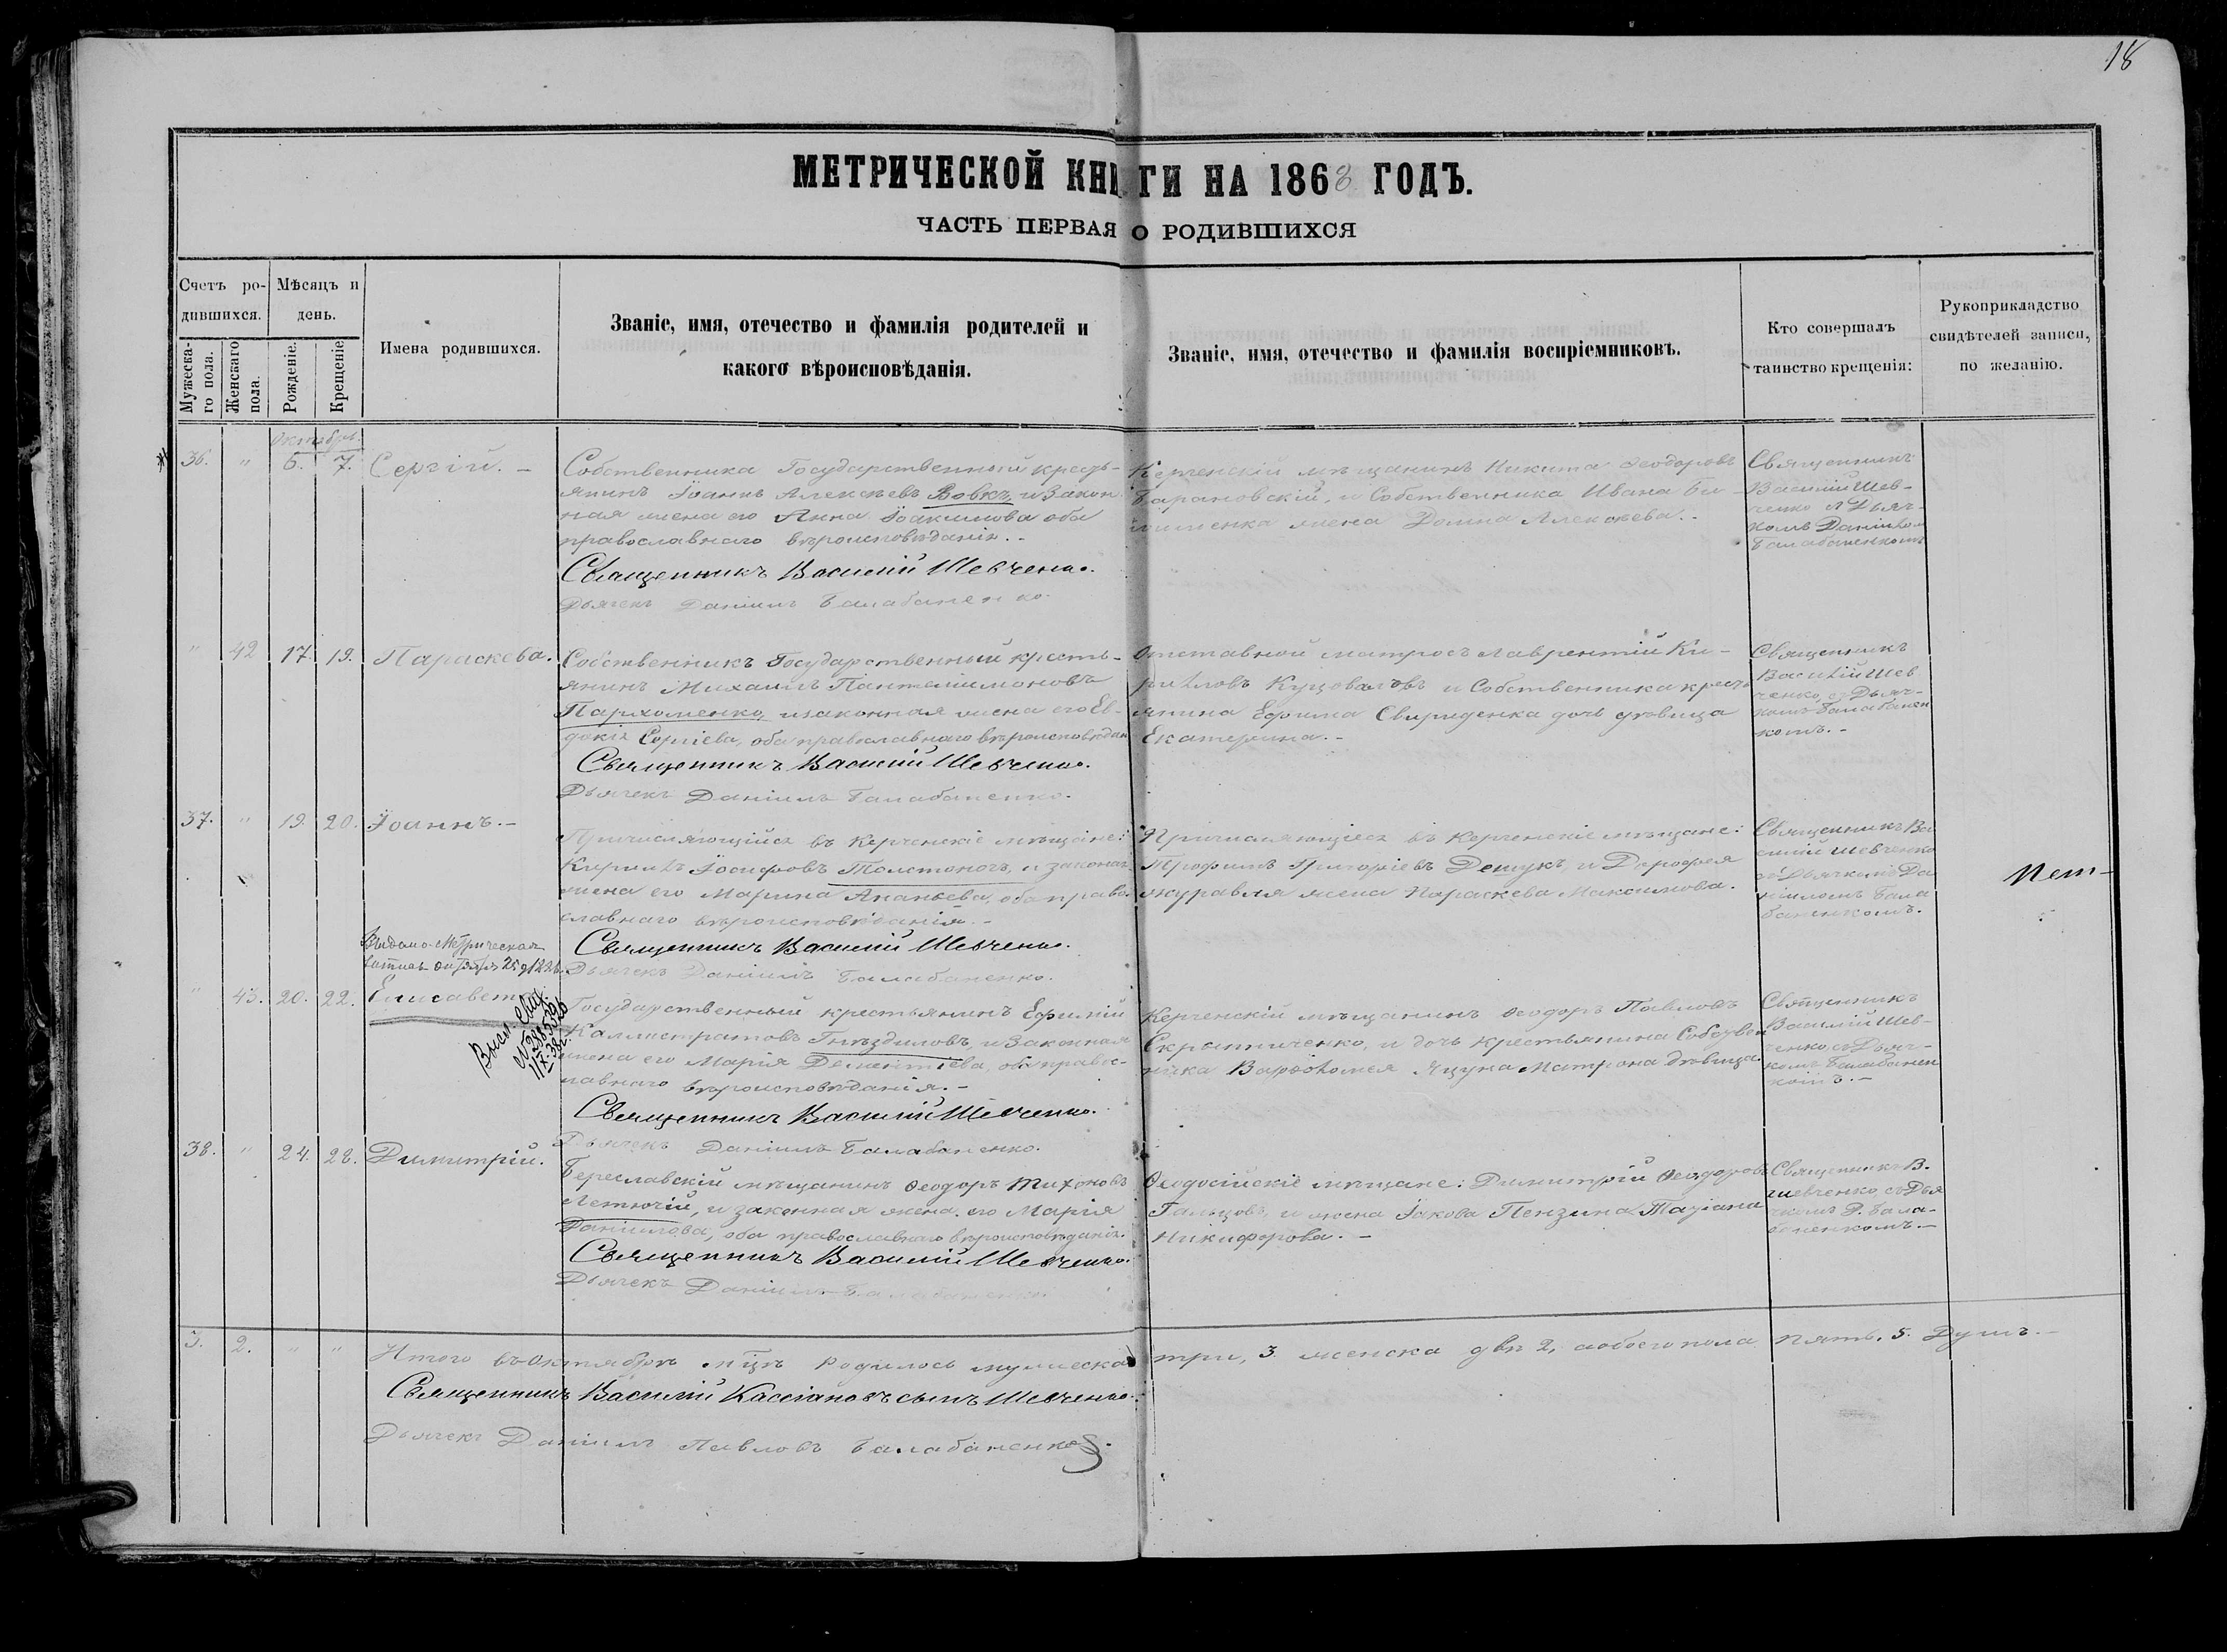 18
МЕТРИЧЕСКОЙ КНИГИ НА 1868 ГОДЪ.
ЧАСТЬ ПЕРВАЯ О РОДИВШИХСЯ
Счетъ ро-
дившихся.
Мужеска-
го пола.
Женскаго
пола.
Мѣсяцъ и
день.
Рожденіе.
Крещеніе
Имена родившихся.
Званіе, имя, отечество и фамилія родителей и
какого вѣроисповѣданія.
Званіе, имя, отечество и фамилія воспріемниковъ.
Кто совершалъ
таинство крещенія:
Рукоприкладство
свидѣтелей записи,
по желанію.
Октябрь
36. " 5. 7. Сергій. -
Собственника Государственный кресть-
янинъ Іоаннъ Алексѣевъ Вовкъ, и закон
ная жена его Анна Іоакимова оба
православнаго вѣроисповѣданія. -
Священникъ Василій Шевченко.
Дьячекъ Даніилъ Балабаненко.
Керченскій мѣщанинъ Никита Ѳеодоровъ
Барановскій, и Собственника Ивана
жена Домна Алексѣева. -
Священникъ
Василій Шев-
ченко съ Дьяч-
комъ Даніиломъ
Балабаненкомъ
" 42 17. 19. Параскева.
Собственникъ Государственный кресть-
янинъ Михаилъ Пантелимоновъ
Пархоменко, и законная жена его Ев-
докія Сергіева, оба православнаго вѣроисповѣдан
Священникъ Василій Шевченко.
Дьячекъ Даніилъ Балабаненко.
Отставной матросъ Лаврентій Ки-
риловъ Куцоваловъ и Собственника крест
янина Ефима Свириденка дочь дѣвица
Екатерина. -
Священникъ
Василій Шев
ченко, съ Дьяч-
комъ Балабанен
комъ. -
37. " 19. 20. Іоаннъ. -
Причисляющійся въ Керченскіе мѣщане:
Кириллъ Іосифовъ Толстоногъ, и законая
жена его Марина Ананьева, оба право
славнаго вѣроисповѣданія. -
Священникъ Василій Шевченко.
Дьячекъ Даніилъ Балабаненко.
Причисляющіеся въ Керченскіе мѣщане:
Трофимъ Григоріевъ Дешукъ, и Дорофея
Журавля жена Параскева Максимова.
Священникъ Ва
силій Шевченко
съ Дьячкомъ Да
ніиломъ Бала
баненкомъ.
Нет
Выдана Метрическая
" 43. 20. 22. Елисавета
Высл. Свид.
№ 2885326
Государственный крестьянинъ Ефимій
Каллистратовъ Гнѣздиловъ, и законная
жена его Марія Дементіева, оба правос-
лавнаго вѣроисповѣданія. -
Священникъ Василій Шевченко.
Дьячекъ Даніилъ Балабаненко.
Керченскій мѣщанинъ Ѳеодоръ Павловъ
Скрыпниченко, и дочь крестьянина Собствен
ника Варѳоломея Яцуна Матрона дѣвица.
Священникъ
Василій Шев-
ченко, съ Дьяч-
комъ Балабанен
комъ. -
38. " 24. 28. Димитрій.
Береславскій мѣщанинъ Ѳеодоръ Тихоновъ
Летючій, и законная жена его Марія
Даніилова, оба православнаго вѣроисповѣданія.
Священникъ Василій Шевченко.
Дьячекъ Даніилъ Балабаненко.
Ѳеодосійскіе мѣщане: Димитрій Ѳеодоровъ
Гальцовъ, и жена Іакова Пензина Татіана
Никифорова. -
Священникъ В.
Шевченко, съ Дья
чкомъ Д. Бала-
баненкомъ. -
3. 2. " " Итого въ Октябрѣ мцѣ родилось мужеска три, 3. женска двѣ 2, а обоего пола пять. 5. Душъ. -
Священникъ Василій Кассіановъ сынъ Шевченко.
Дьячекъ Даніилъ Павловъ Балабаненко.